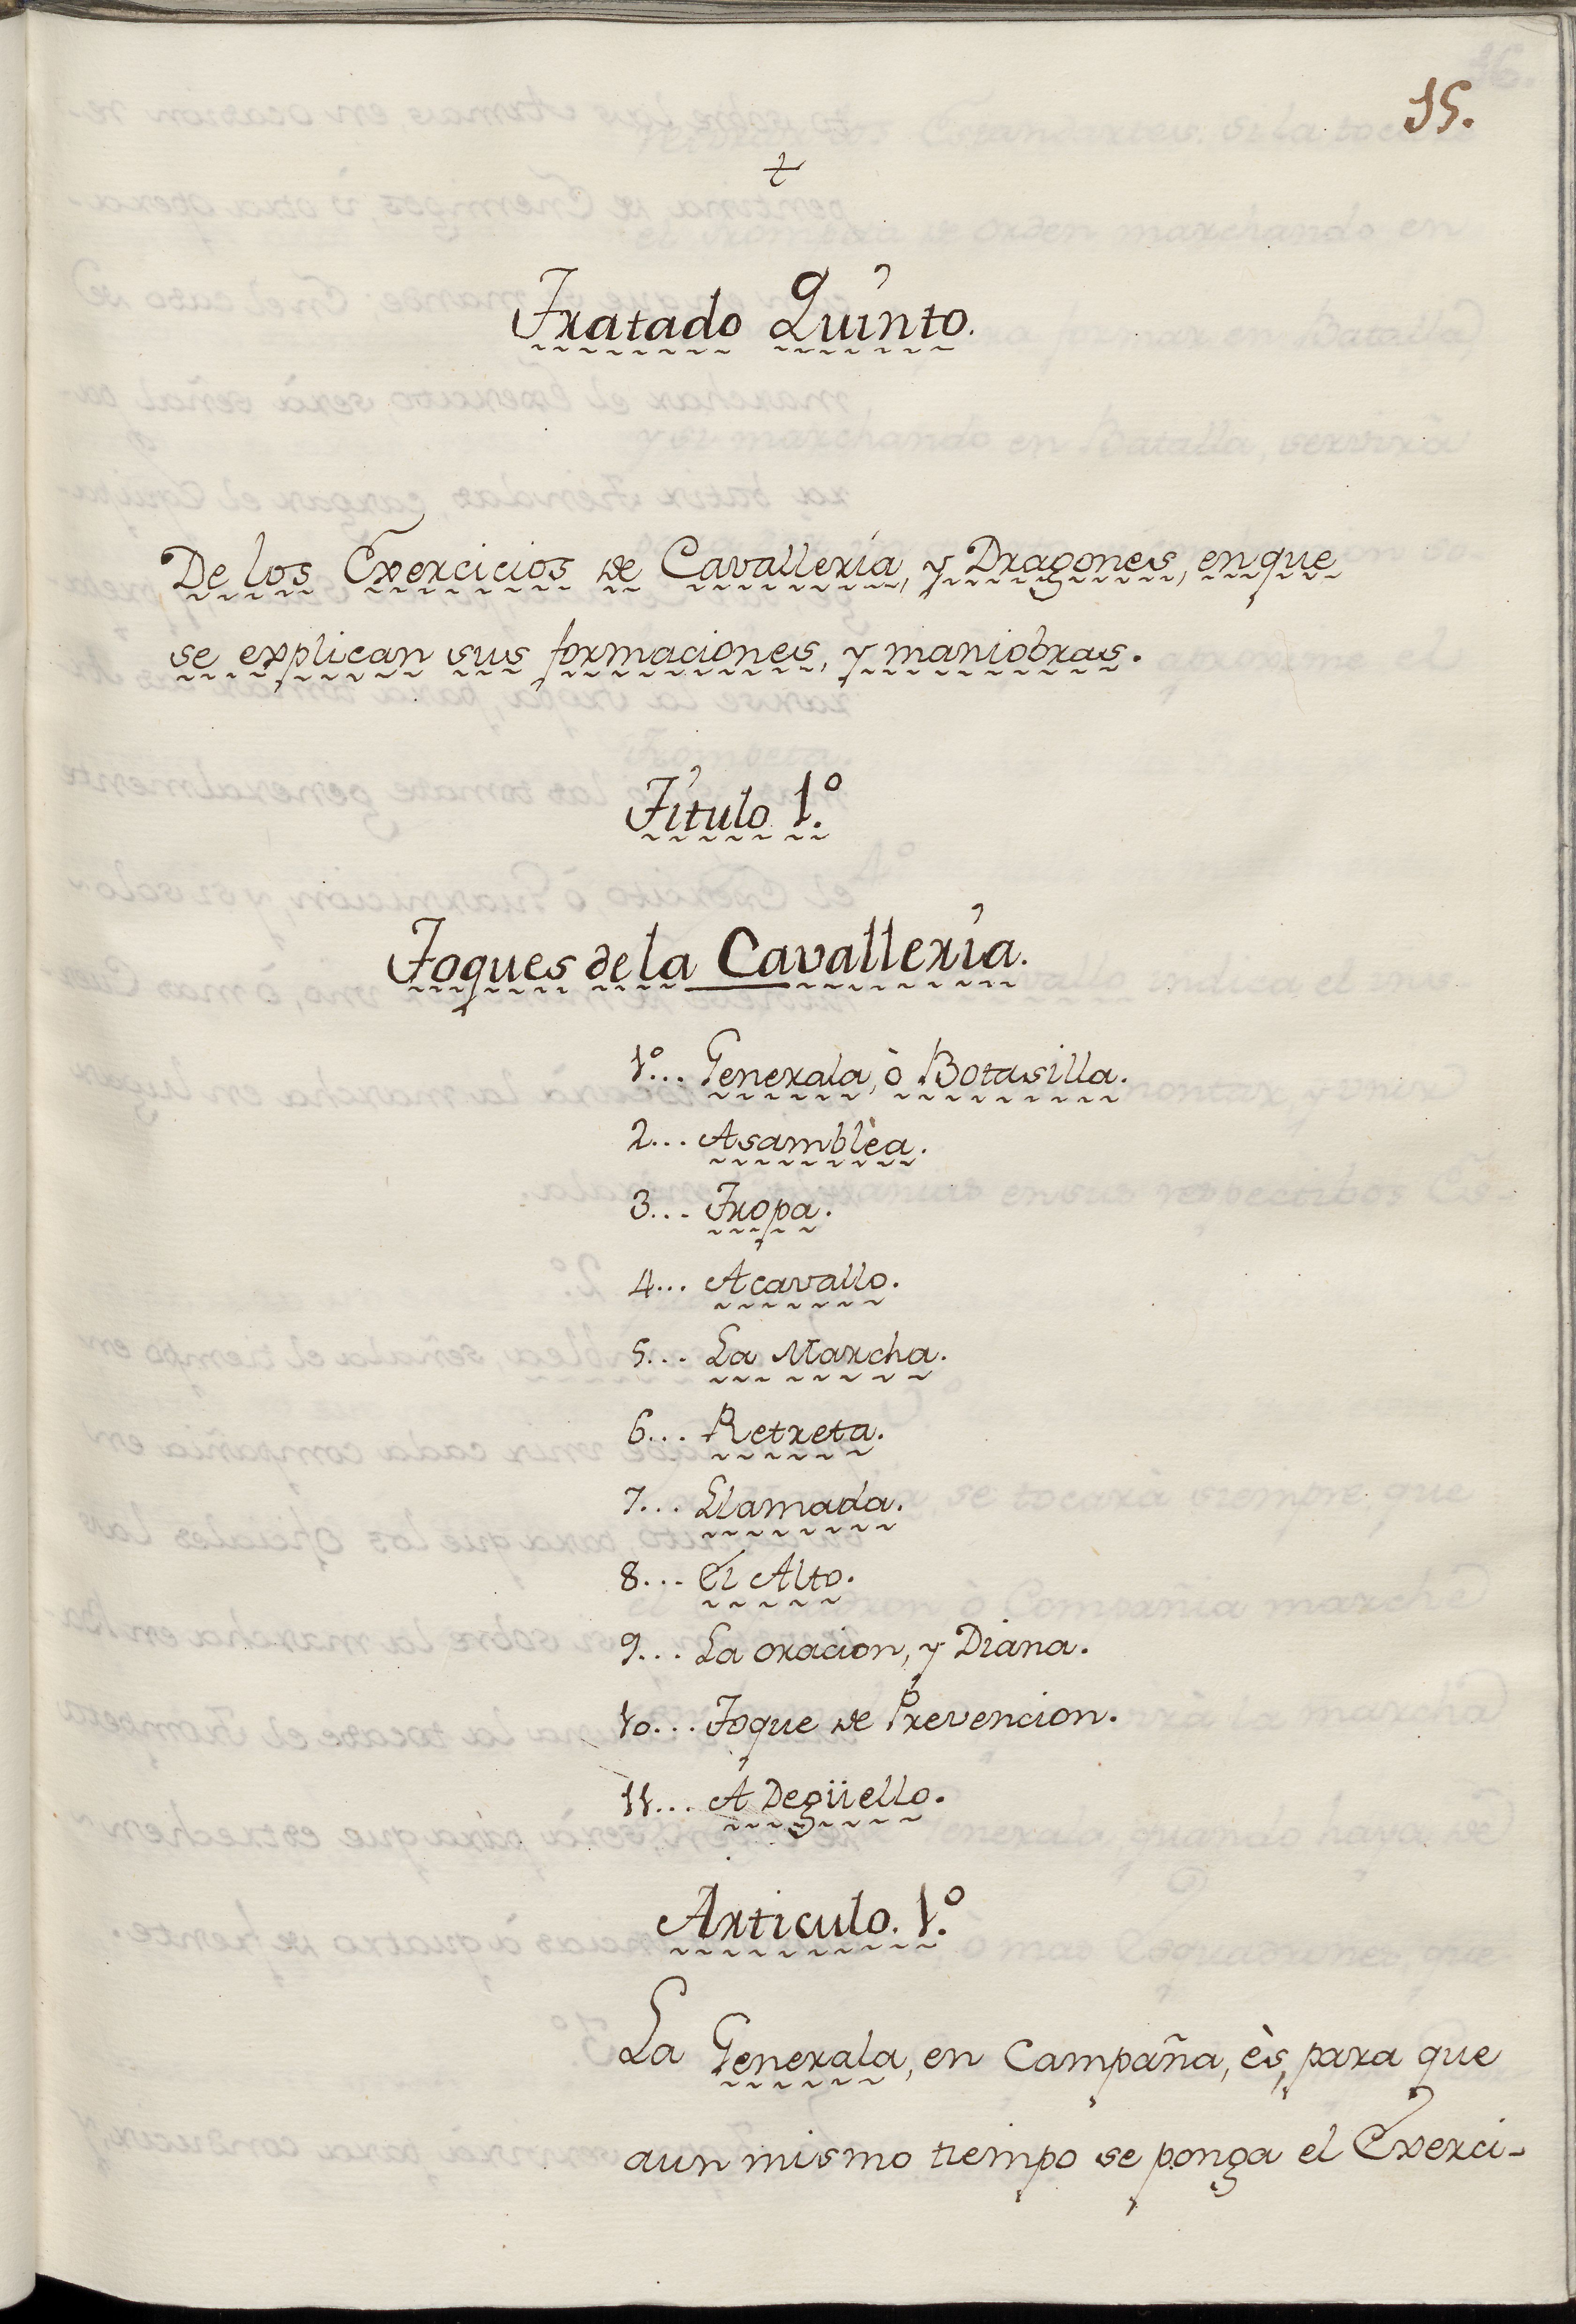 15.
Tratado Quinto.
De los Exercicios de Cavallería, y Dragones, en que
se explican sus formaciones, y maniobras.
Título 1.º
Toques de la Cavallería.
1º... Generala, ò Botasilla.
2... Asamblèa.
3... Tropa.
4... Acavallo.
5... La Marcha.
6... Retreta.
7... Llamada.
8... El Alto.
9... La oracion, y Diana.
10... Toque de Prevencion.
11... A Degüello.
Articulo. 1.º
La Generala, en Campaña, ès, para que
aun mismo tiempo se ponga el Exerci-